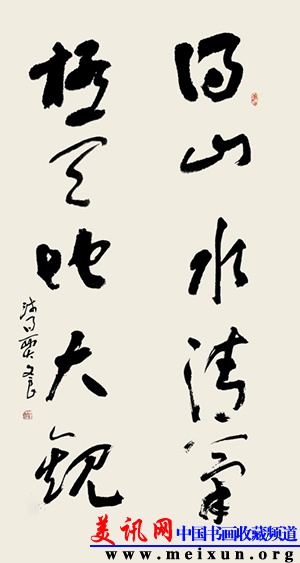 得山水清氣
極天地大觀
美讯网 中国书画收藏频道
www.meixun.org